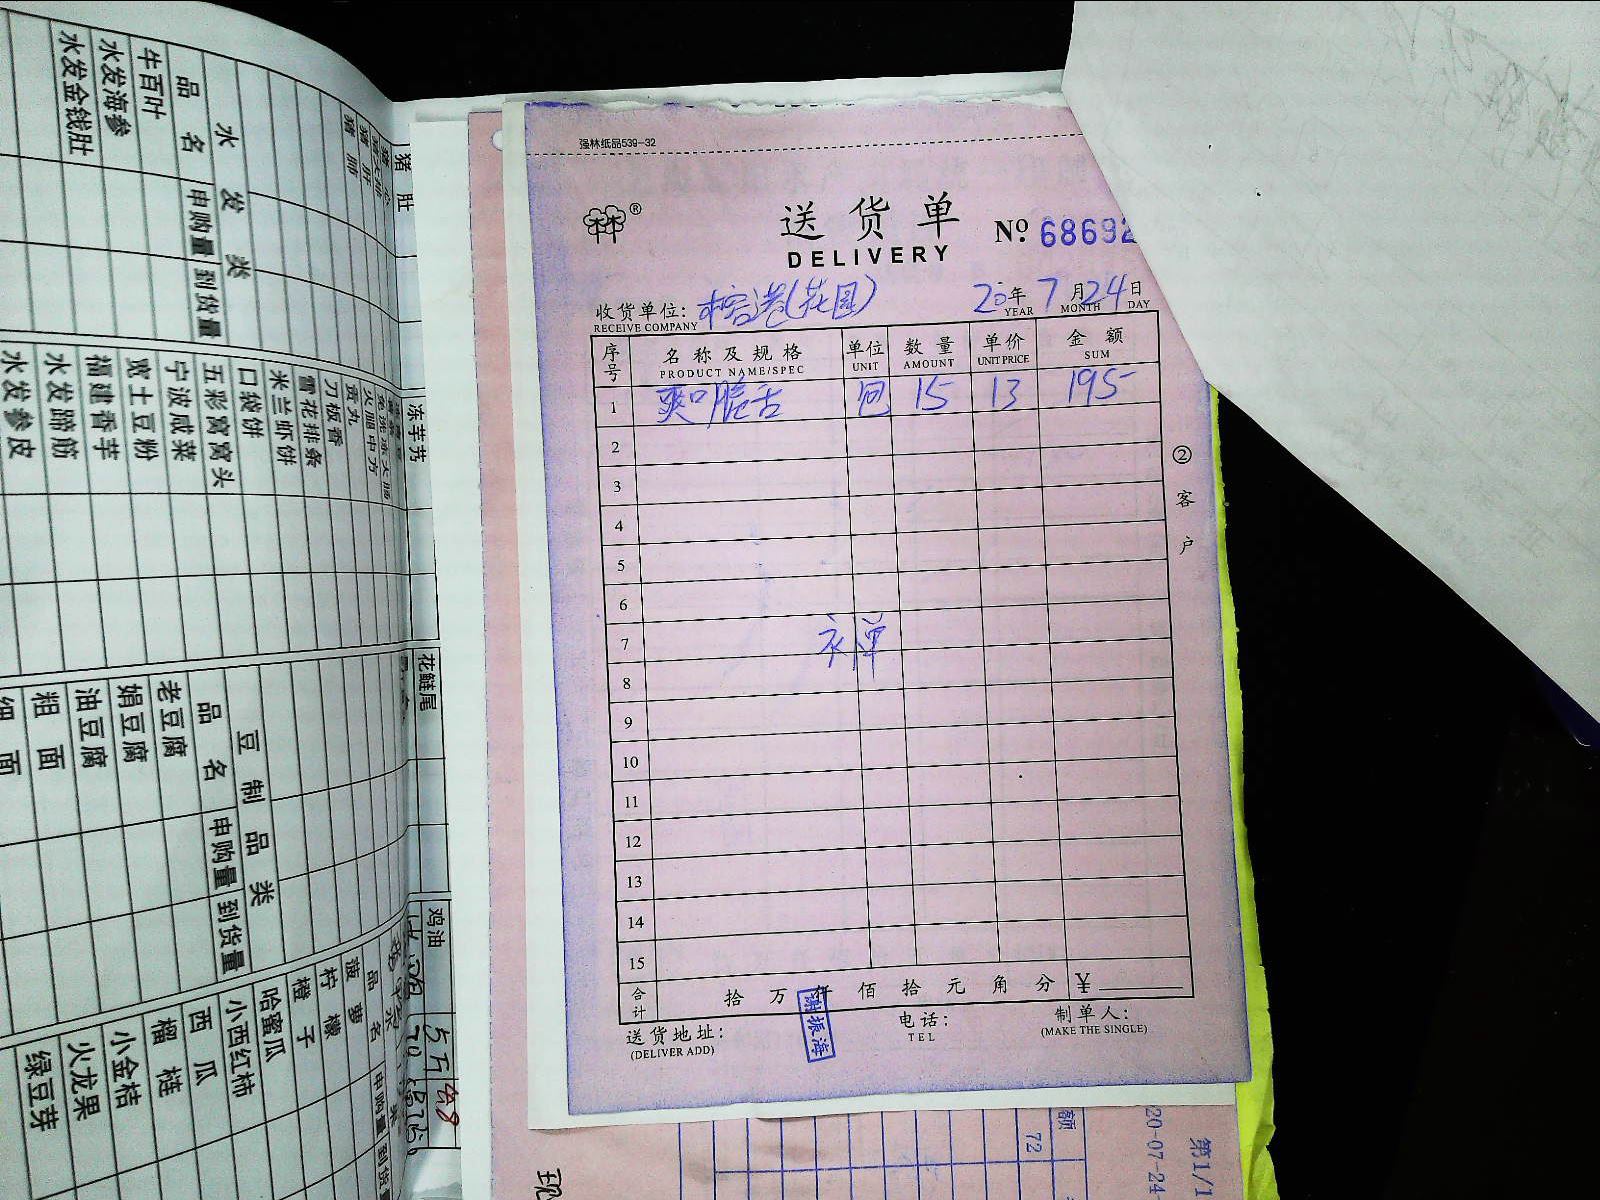 强林纸品539-32
®
送货单
DELIVERY
Nº 68692
收货单位: 榕港(花园) 20年 7月 24日
RECEIVE COMPANY YEAR MONTH DAY
序号 名称及规格 单位 数量 单价 金额
PRODUCT NAME/SPEC UNIT AMOUNT UNIT PRICE SUM
1 爽口脆舌 包 15 13 195-
2
3
4
5
6
7
8
9
10
11
12
13
14
15
合计 拾 万 仟 佰 拾 元 角 分 ¥
谢振海
送货地址: 电话: 制单人:
(DELIVER ADD) TEL (MAKE THE SINGLE)
②客户
水发类
品名 申购量 到货量
牛百叶
水发海参
水发金钱肚
猪肚
猪肝
猪肺
冻芋艿
火腿中方
贡丸
刀板香
雪花排条
米兰虾饼
口袋饼
五彩窝窝头
宁波咸菜
宽土豆粉
福建香芋
水发蹄筋
水发参皮
花鲢尾
豆制品类
品名 申购量 到货量
老豆腐
娟豆腐
油豆腐
粗面
细面
鸡油
品名 申购量 到货量
菠萝
柠檬
橙子
哈蜜瓜
小西红柿
西瓜
榴梿
小金桔
火龙果
绿豆芽
额
72
20-07-24
第1/1
现